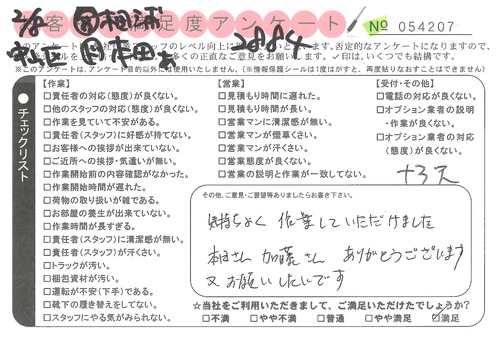 お客様満足度アンケート No 054207
2884
☆このアンケートは
否定的なアンケートになりますので、
多くの正直なご意見をお願いします。✓印は、いくつでも結構です。
※このアンケートは、アンケート目的以外には使用いたしません。(※情報保護シールは1度はがすと、再度貼りなおすことはできません)
チェックリスト
【作業】
□責任者の対応(態度)が良くない。
□他のスタッフの対応(態度)が良くない。
□作業を見ていて不安がある。
□責任者(スタッフ)に好感が持てない。
□お客様への挨拶が出来ていない。
□ご近所への挨拶・気遣いが無い。
□作業開始前の内容確認がなかった。
□作業開始時間が遅れた。
□荷物の取り扱いが雑である。
□お部屋の養生が出来ていない。
□作業時間が長すぎる。
□責任者(スタッフ)に清潔感が無い。
□責任者(スタッフ)が汗くさい。
□トラックが汚い。
□梱包資材が汚い。
□運転が不安(下手)である。
□靴下の履き替えをしてない。
□スタッフにやる気が感じられない。
【営業】
□見積もり時間に遅れた。
□見積もり時間が長い。
□営業マンに清潔感が無い。
□営業マンが煙草くさい。
□営業マンが汗くさい。
□営業態度が良くない。
□営業の説明と作業が一致してない。
【受付・その他】
□電話の対応が良くない。
□オプション業者の説明
・作業が良くない。
□オプション業者の対応
(態度)が良くない。
その他、ご意見・ご要望等ありましたらお書き下さい。
気持ちよく 作業していただけました
さん 加藤さん ありがとうございます
又お願いしたいです
☆当社をご利用いただきまして、ご満足いただけたでしょうか?
□不満 □やや不満 □普通 □やや満足 ☑満足